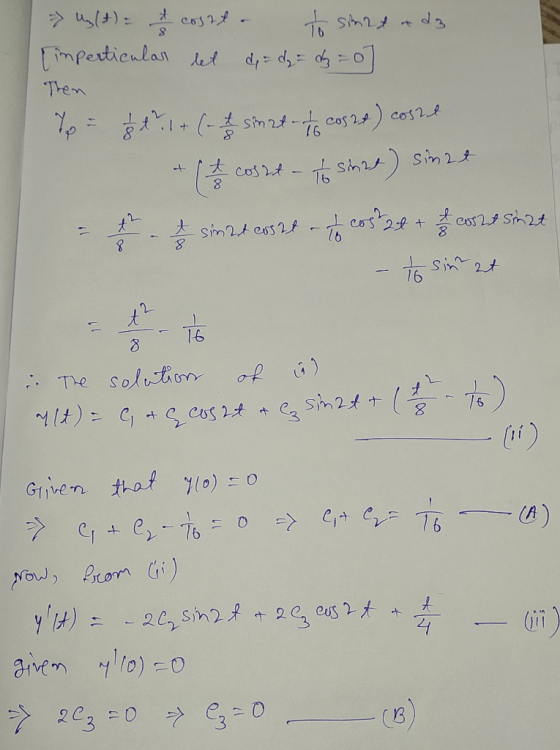 ⇒ u₃(t) = t/8 cos2t - 1/16 sin2t + d₃
[inperticular let d₁ = d₂ = d₃ = 0]
Then
Yp = 1/8 t². 1 + (- t/8 sin2t - 1/16 cos2t) cos2t
+ (t/8 cos2t - 1/16 sin2t) sin2t
= t²/8 - t/8 sin2t cos2t - 1/16 cos²2t + t/8 cos2t sin2t
- 1/16 sin²2t
= t²/8 - 1/16
∴ The solution of (i)
y(t) = c₁ + c₂ cos2t + c₃ sin2t + (t²/8 - 1/16)
—— (ii)
Given that y(0) = 0
⇒ c₁ + c₂ - 1/16 = 0 ⇒ c₁ + c₂ = 1/16 —— (A)
Now, from (ii)
y'(t) = - 2c₂ sin2t + 2c₃ cos2t + t/4 —— (iii)
given y'(0) = 0
⇒ 2c₃ = 0 ⇒ c₃ = 0 —— (B)